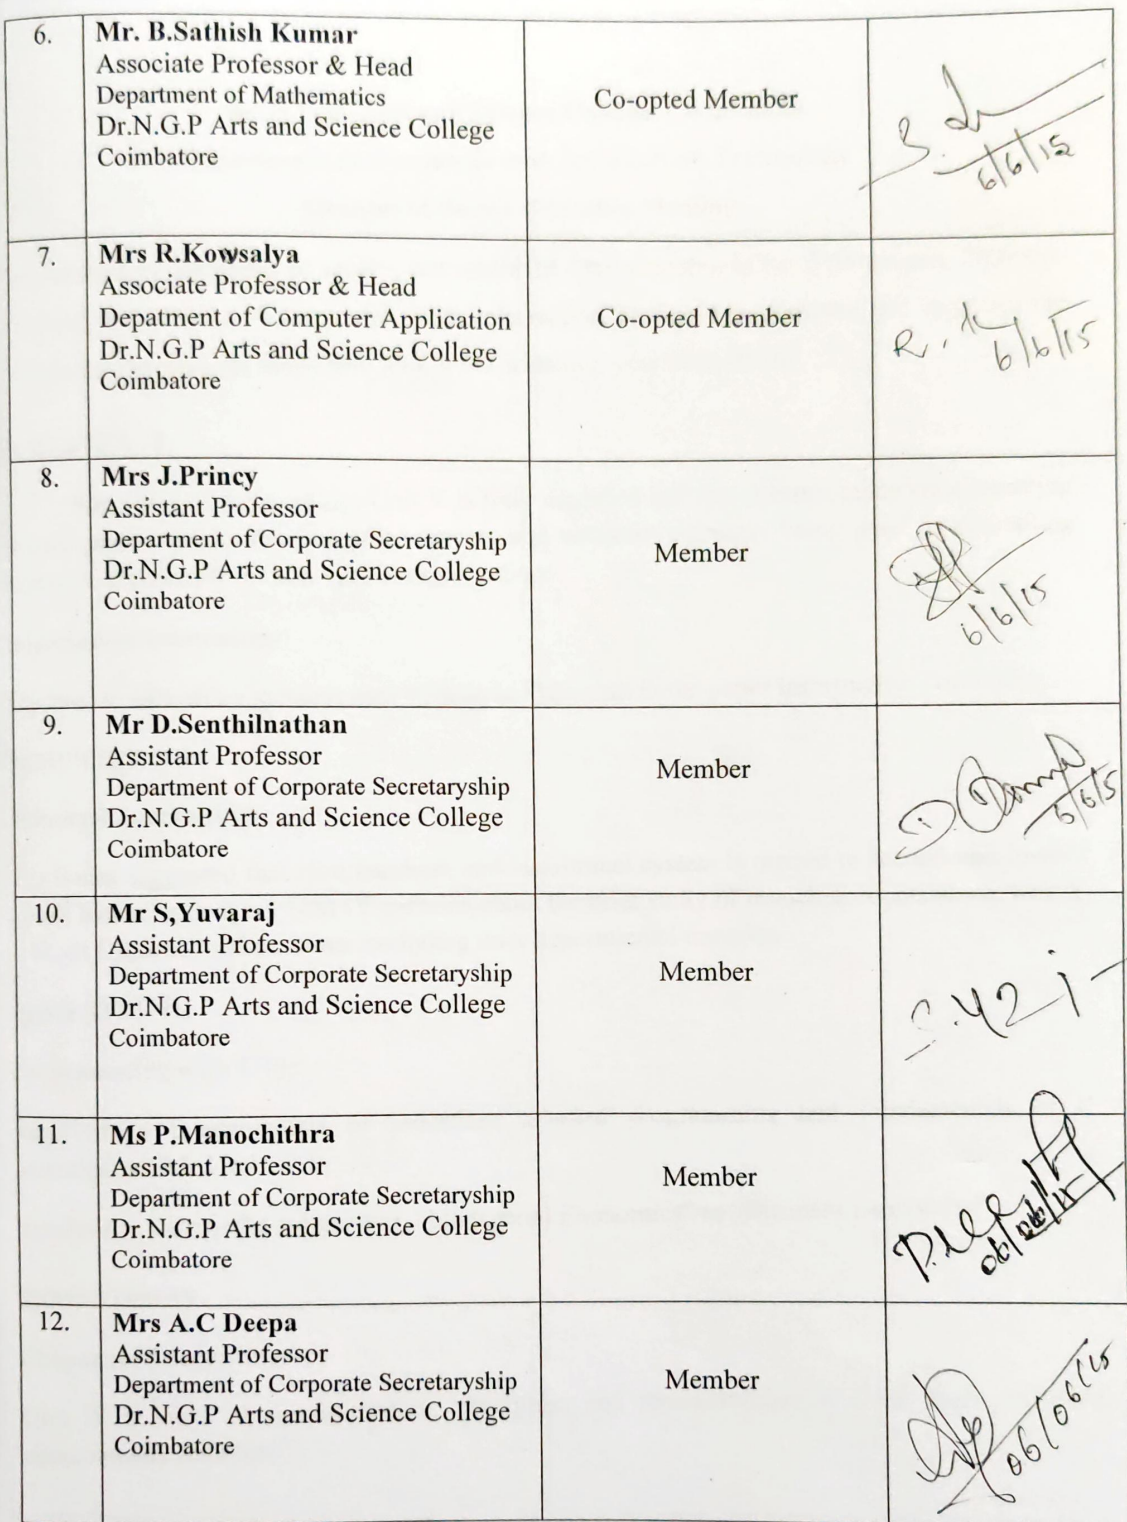 6.
Mr. B.Sathish Kumar
Associate Professor & Head
Department of Mathematics
Dr.N.G.P Arts and Science College
Coimbatore
Co-opted Member
6/6/15
7.
Mrs R.Kowsalya
Associate Professor & Head
Depatment of Computer Application
Dr.N.G.P Arts and Science College
Coimbatore
Co-opted Member
R.
6/6/15
8.
Mrs J.Princy
Assistant Professor
Department of Corporate Secretaryship
Dr.N.G.P Arts and Science College
Coimbatore
Member
6/6/15
9.
Mr D.Senthilnathan
Assistant Professor
Department of Corporate Secretaryship
Dr.N.G.P Arts and Science College
Coimbatore
Member
D.
6/6/5
10.
Mr S,Yuvaraj
Assistant Professor
Department of Corporate Secretaryship
Dr.N.G.P Arts and Science College
Coimbatore
Member
11.
Ms P.Manochithra
Assistant Professor
Department of Corporate Secretaryship
Dr.N.G.P Arts and Science College
Coimbatore
Member
06/06/15
12.
Mrs A.C Deepa
Assistant Professor
Department of Corporate Secretaryship
Dr.N.G.P Arts and Science College
Coimbatore
Member
06/06/15